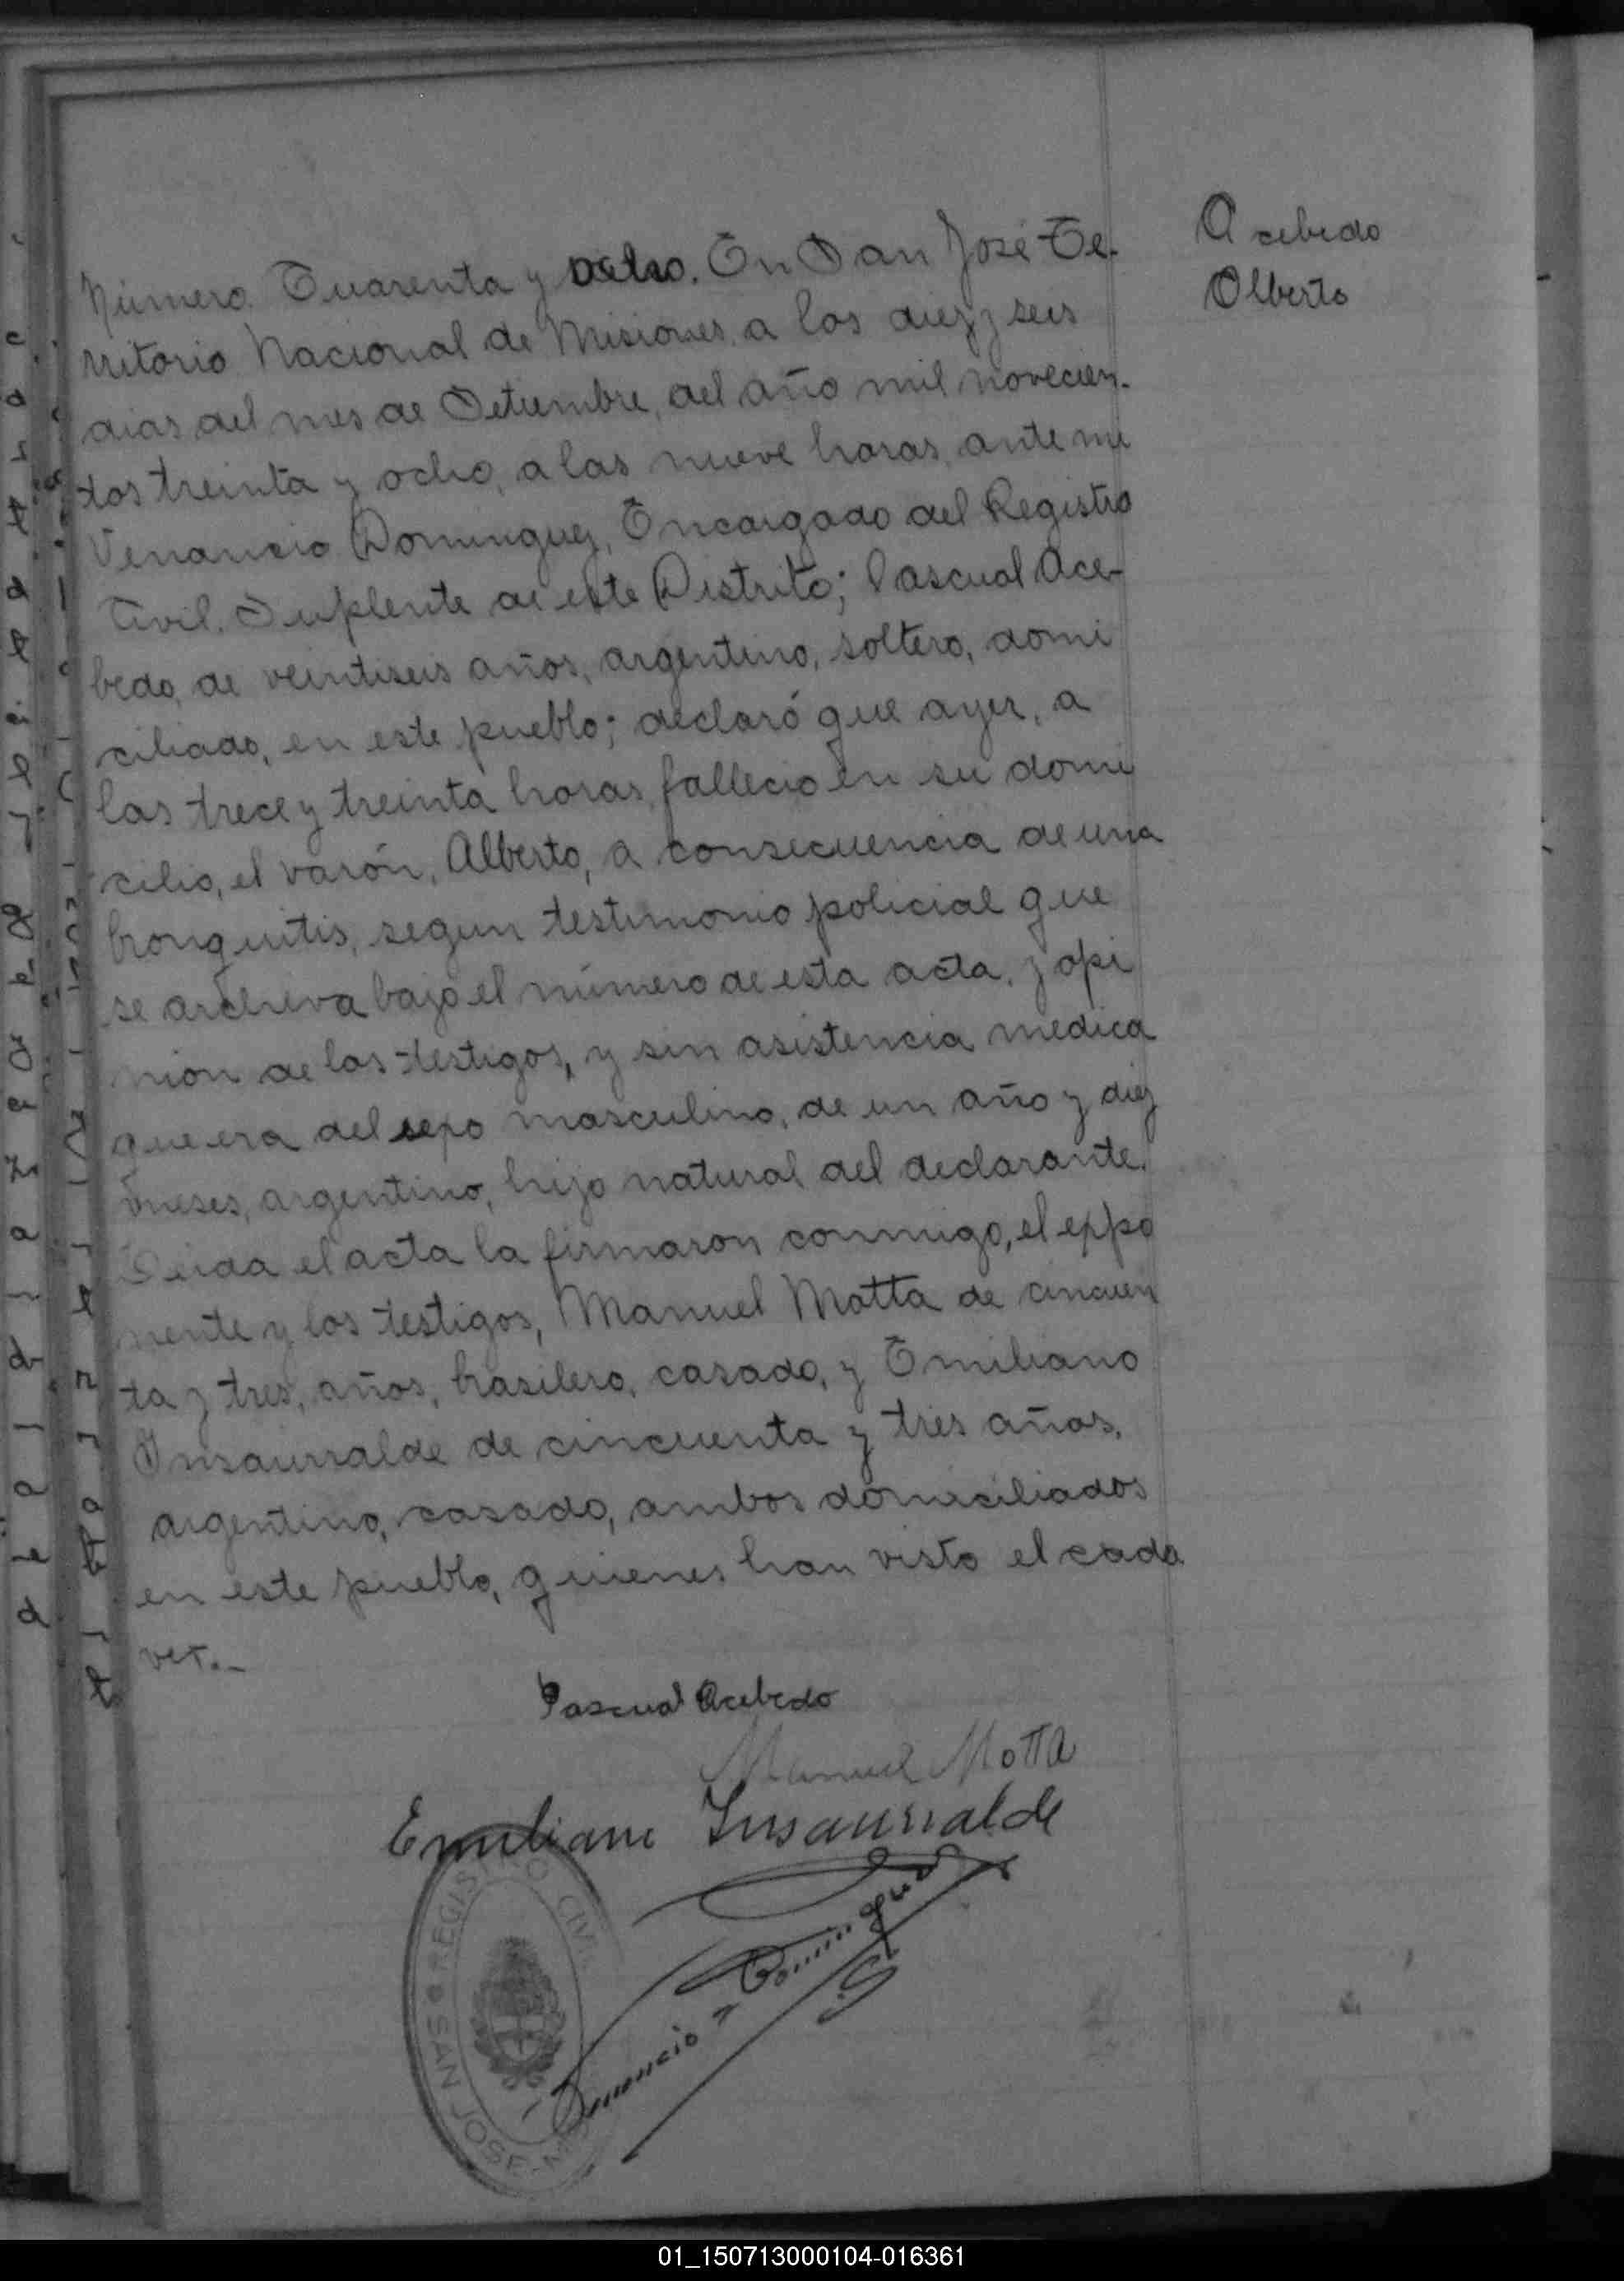 Acebedo
Alberto
Número Cuarenta y ocho. En San José Te-
rritorio Nacional de Misiones, a los diez y seis
dias del mes de Setiembre, del año mil novecien-
tos treinta y ocho, a las nueve horas, ante mi
Venancio Dominguez, Encargado del Registro
Civil. Suplente de este Distrito; Pascual Ace-
bedo, de veintiseis años, argentino, soltero, domi
ciliado, en este pueblo; declaró que ayer, a
las trece y treinta horas, fallecio en su domi
cilio, el varón, Alberto, a consecuencia de una
bronquitis, segun testimonio policial que
se archiva bajo el número de esta acta, y opi
nion de los testigos, y sin asistencia medica
que era del sexo masculino, de un año y diez
meses, argentino, hijo natural del declarante.
Leida el acta la firmaron conmigo, el expo
nente y los testigos, Manuel Motta de cincuen
ta y tres, años, brasilero, casado, y Emiliano
Insaurralde de cincuenta y tres años,
argentino, casado, ambos domiciliados
en este pueblo, quienes han visto el cada
ver.-
Pascual Acebedo
Manuel Motta
Emiliano Insaurralde
Venancio Dominguez
REGISTRO CIVIL
SAN JOSE-
01_150713000104-016361